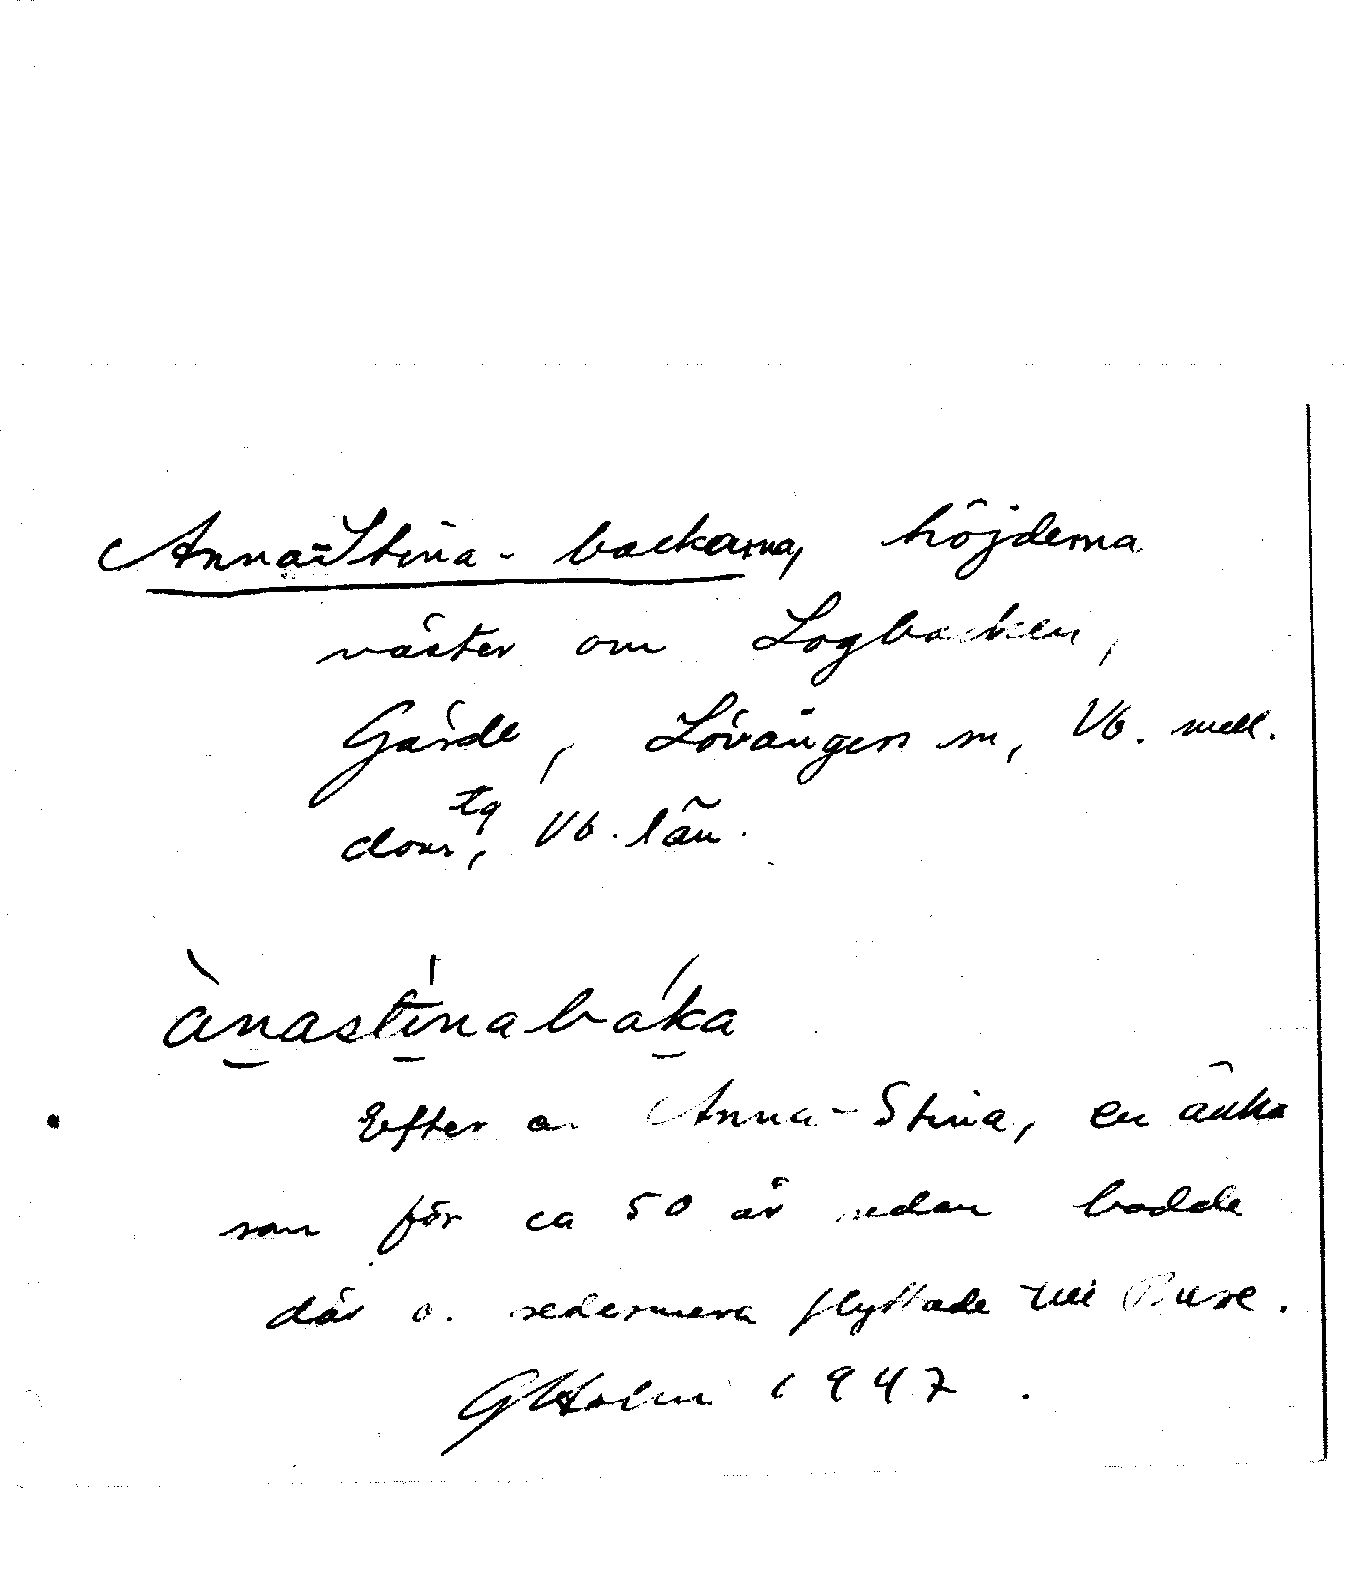 Anna-Stina-backarna, höjderna
väster om Logbacken,
Gärde, Lövångers sn, Vb. mell.
doms tg, Vb. län.
ànastínabáka
Efter a. Anna-Stina, en änka
som för ca 50 år sedan bodde
där o. sedermera flyttade till Bure.
GHolm 1947.